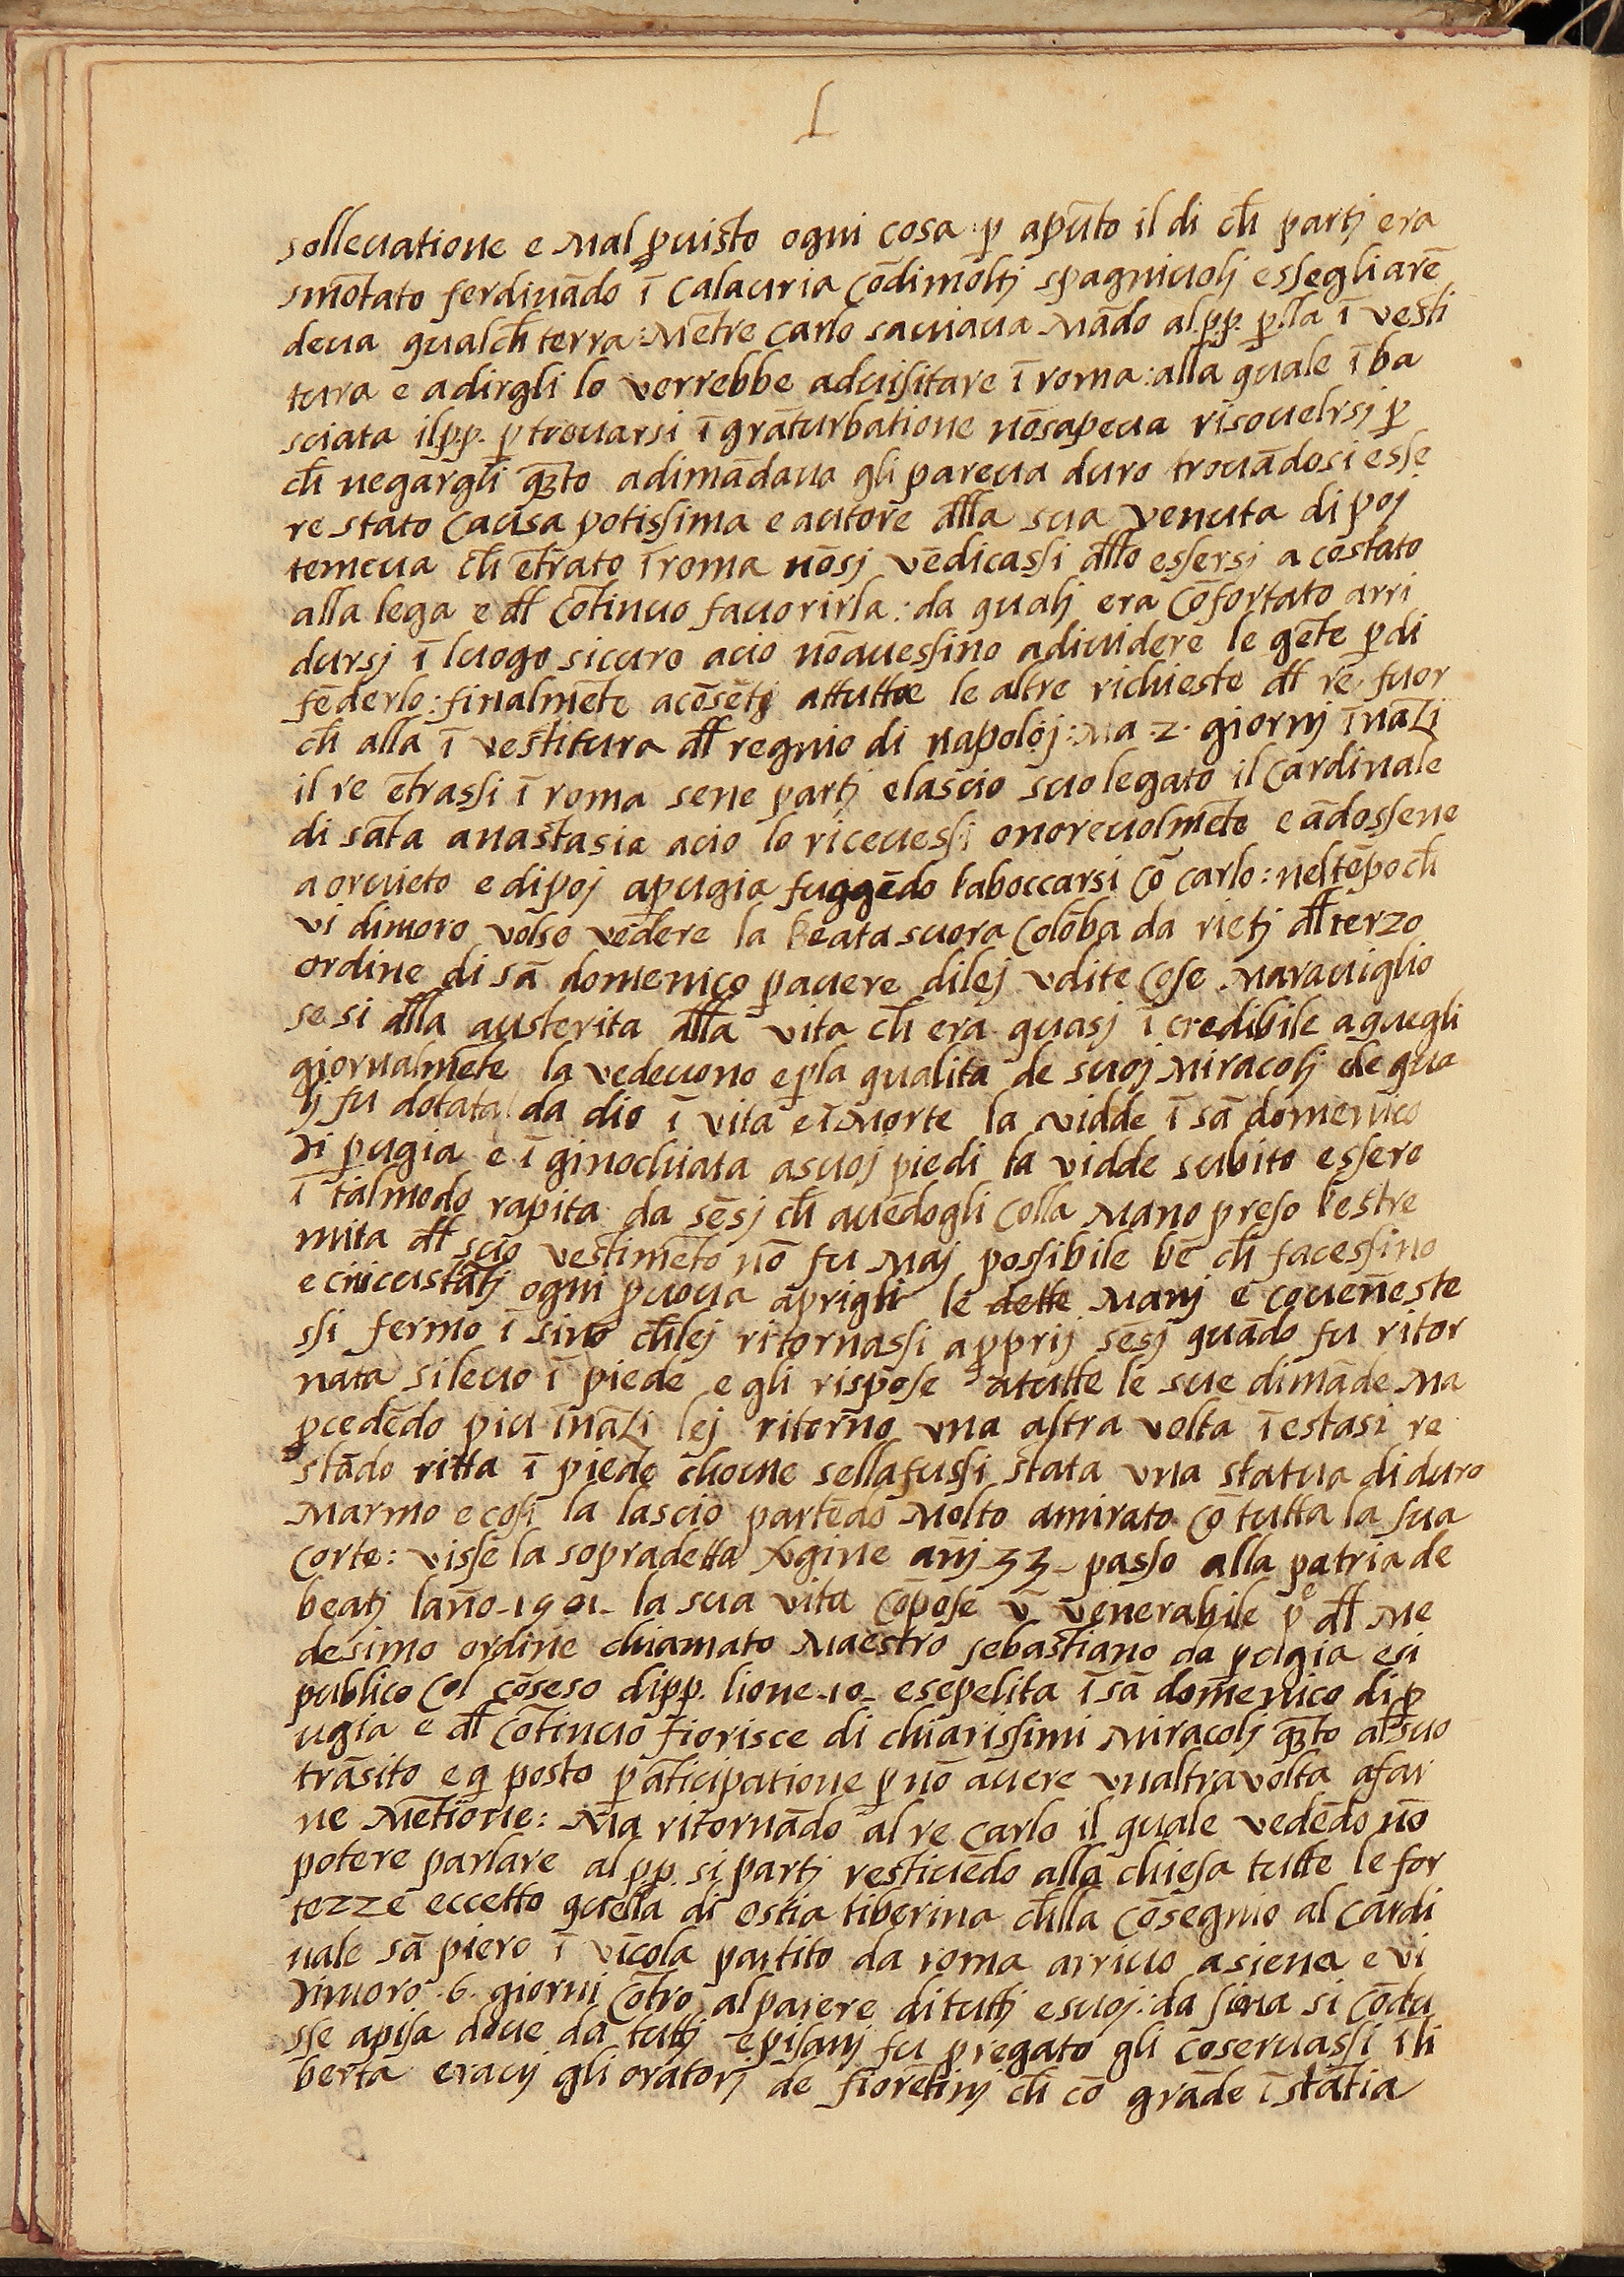 L
solleuatione e mal ꝓuisto ogni cosa: ꝑ apūto il di cħ partj era
smōtato ferdinādo ī calauria cōdimoltj spagniuolj essegliarē
deua qualcħ terra: mētre carlo sauiaua mādo al.p.p. ꝑ.lla ī vesti
tura e adirgli lo verrebbe aduisitare ī roma: alla quale ī ba
sciata ilp.p. ꝑ trouarsi ī grāturbatione nōsapeua risouelrsj ꝑ
cħ negargli qūto adimādaua gli pareua duro trouādosi esse
re stato causa potissima e autore dlla sua venuta di poj
temeua cħ ētrato ī roma nōsj vēdicassi dllo essersj a costato
alla lega e dl cōtinuo fauorirla: da qualj era cōfortato arri
dursj ī luogo sicuro acio nōauessino adiuidere le gēte ꝑ di
fēderlo: finalmēte acōsētj attutte le altre richieste dl re, fuor
cħ alla ī vestitura dl regnio di napolj: ma .2. giornj īnāzi
il re ētrassi ī roma sene partj elascio suo legato il cardinale
di sāta anastasia acio lo riceuessi onoreuolmēte e ādossene
a oruieto e dipoj apugia fuggēdo laboccarsi cō carlo: neltēpo cħ
vi dimoro volse vedere la beata suora colōba da rietj dl terzo
ordine di sā domenico ꝑ auere dilej vdite cose marauiglio
se si dlla austerita dlla vita cħ era quasj ī credibile a quegli
giornalmēte la vedeuono e ꝑla qualita de suoj miracolj de qua
lj fu dotata da dio ī vita e ī morte la vidde ī sā domenico
di ꝑugia e ī ginochiata asuoj piedi la vidde subito essere
ī talmodo rapita da sēsj cħ auēdogli colla mano preso lestre
mita dl suo vestimēto nō fu maj possibile bē cħ facessino
e circustātj ogni ꝓuoua aprigli le dette manj e cōuēneste
ssi fermo ī sino cħlej ritornassi a ꝓprij sēsj quādo fu ritor
nata si leuo ī piede e gli rispose atutte le sue dimāde ma
ꝓcedēdo piu īnāzi lej ritorno vna altra volta ī estasi re
stādo ritta ī piede chome sellafussi stata vna statua di duro
marmo e cosi la lascio partēdo molto amirato cō tutta la sua
corte: visse la sopradetta vgine anj 33 - passo alla patria de
beatj lano -1501- la sua vita cōpose v̄ venerabile pᵉ dl me
desimo ordine chiamato maestro sebastiano da ꝑugia esi
publico col cōseso dip.p. lione -10- esepelita ī sā domenico di ꝑ
ugia e dl cōtinuo fiorisce di chiarissimi miracolj qūto al suo
trāsito e q̄ posto ꝑ āticipatione ꝑ nō auere vnaltra volta afar
ne mētione: ma ritornādo al re carlo il quale vedēdo nō
potere parlare al p.p. si partj restituēdo alla chiesa tutte le for
tezze eccetto quella di ostia tiberina cħlla cōsegnio al cardi
nale sā piero ī vīcola partito da roma arriuo a siena e vi
dimoro .6. giorni cōtro al parere di tuttj e suoj: da siena si cōdu
sse apisa doue da tuttj e pisanj fu pregato gli coseruassi ī li
berta erauj gli oratorj de fiorētinj cħ cō grāde ī stātia